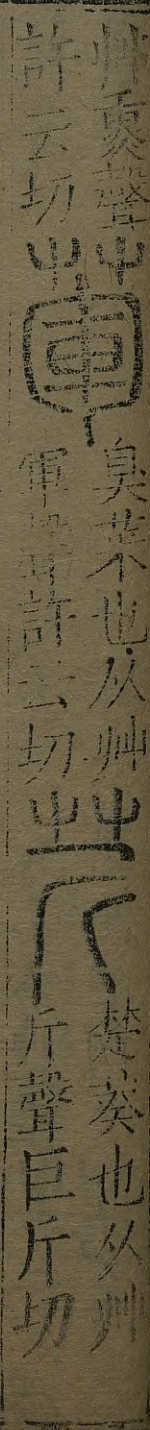 艸熏聲
許云切
葷
臭菜也从艸
軍聲許云切
芹
楚葵也从艸
斤聲巨斤切